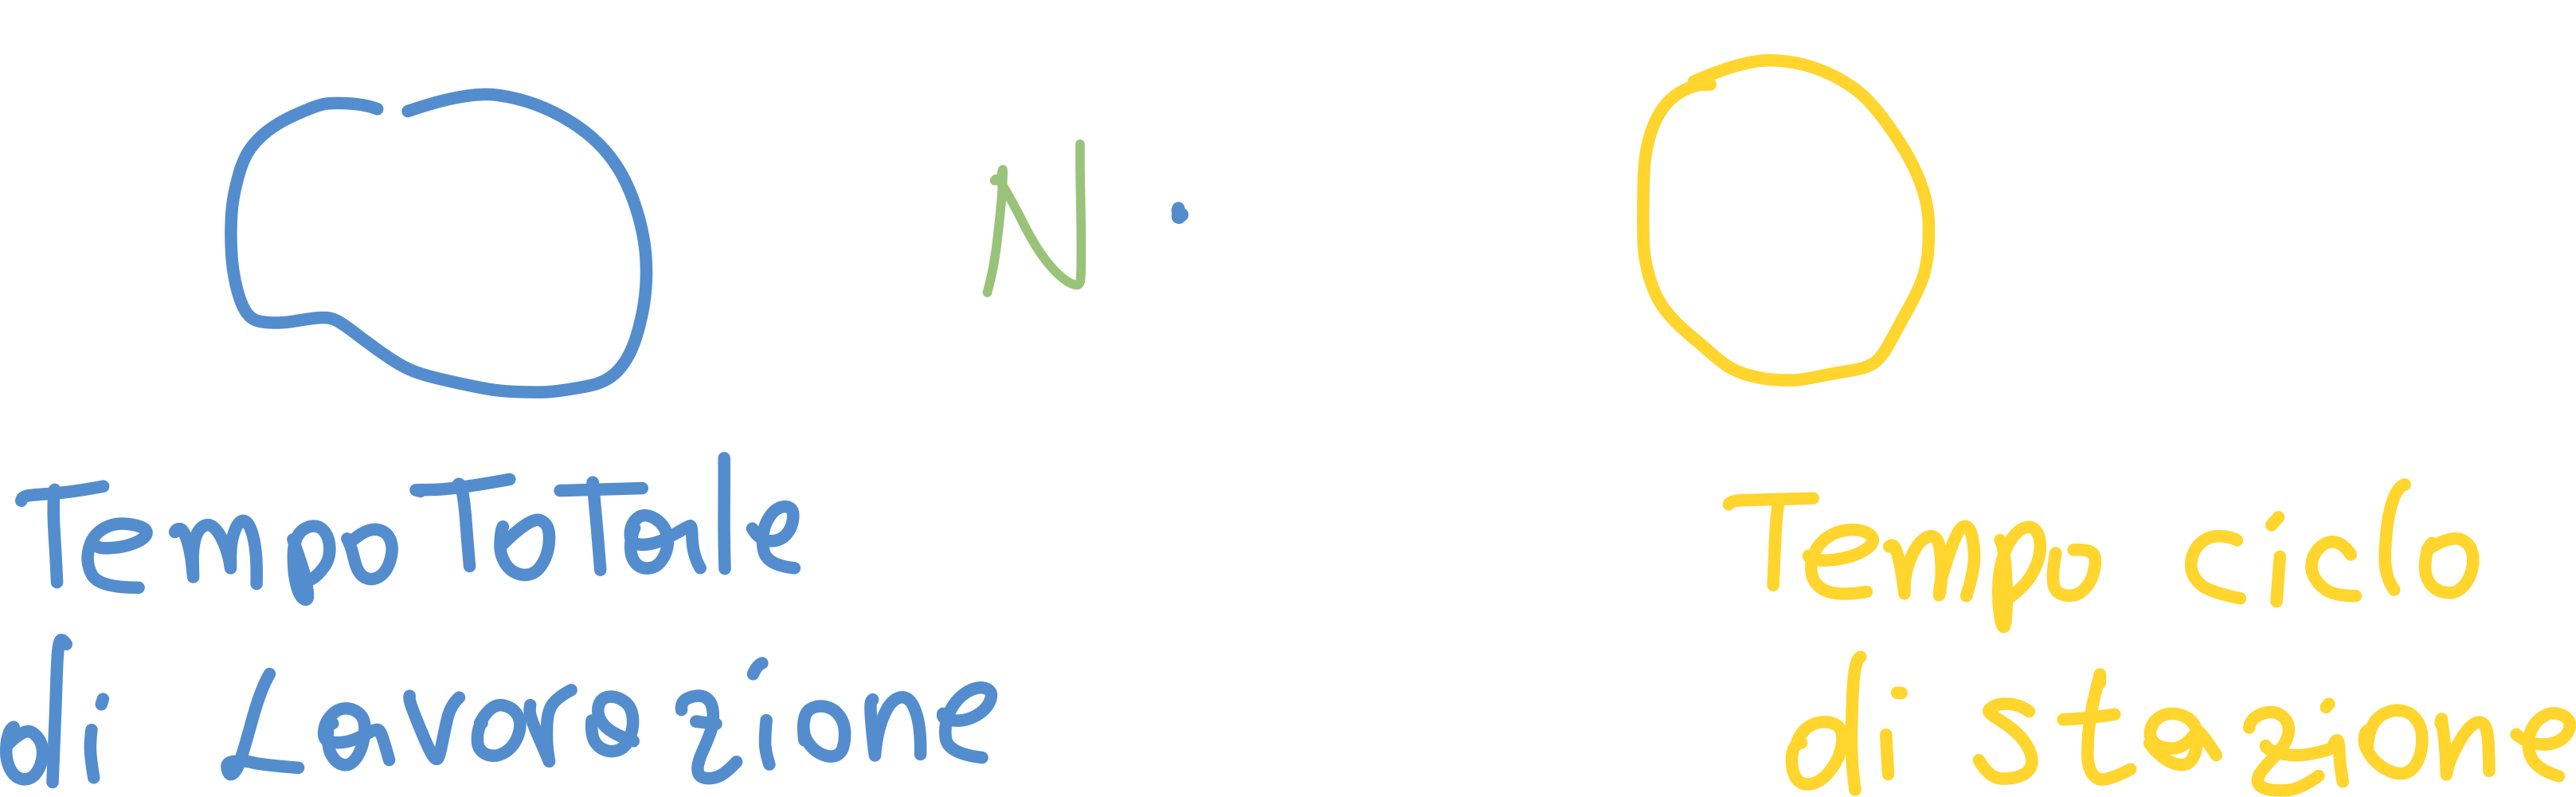 N .
Tempo Totale
di Lavorazione
Tempo ciclo
di stazione